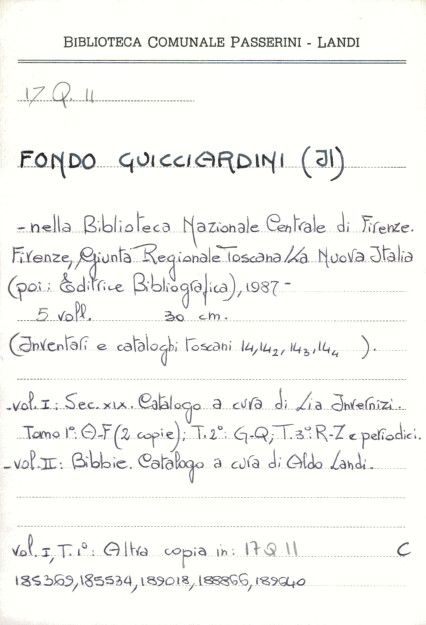 BIBLIOTECA COMUNALE PASSERINI - LANDI
17 Q. 11
FONDO GUICCIARDINI (Il)
- nella Biblioteca Nazionale Centrale di Firenze.
Firenze, Giunta Regionale Toscana/La Nuova Italia
(poi: Editrice Bibliografica), 1987 -
5 voll. 30 cm.
(Inventari e cataloghi toscani 14, 14₂, 14₃, 14₄ ).
- vol. I: Sec. XIX. Catalogo a cura di Lia Invernizi.
Tomo 1°: A-F (2 copie); T. 2°: G-Q; T. 3°: R-Z e periodici.
- vol. II: Bibbie. Catalogo a cura di Aldo Landi.
vol. I, T. 1°: Altra copia in: 17 Q 11 C
185369, 185534, 189018, 188866, 189640